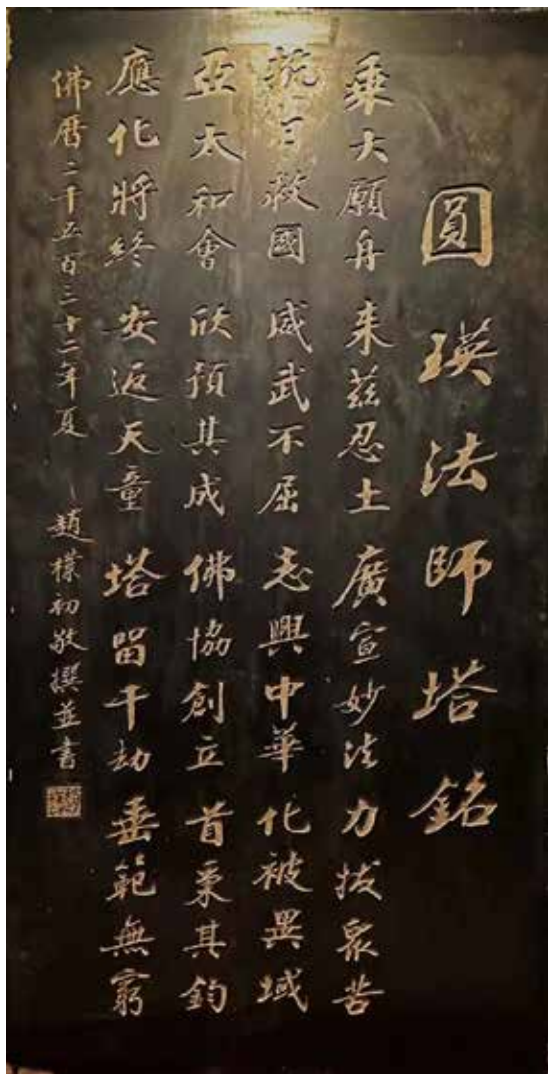 圓瑛法師塔銘
乘大願舟 来茲忍土 廣宣妙法 力拔衆苦
抗日救國 威武不屈 志興中華 化被異域
亞太和會 欣預其成 佛協創立 首秉其鈞
應化將終 安返天童 塔留千劫 垂範無窮
佛曆二千五百三十二年夏 趙樸初敬撰並書